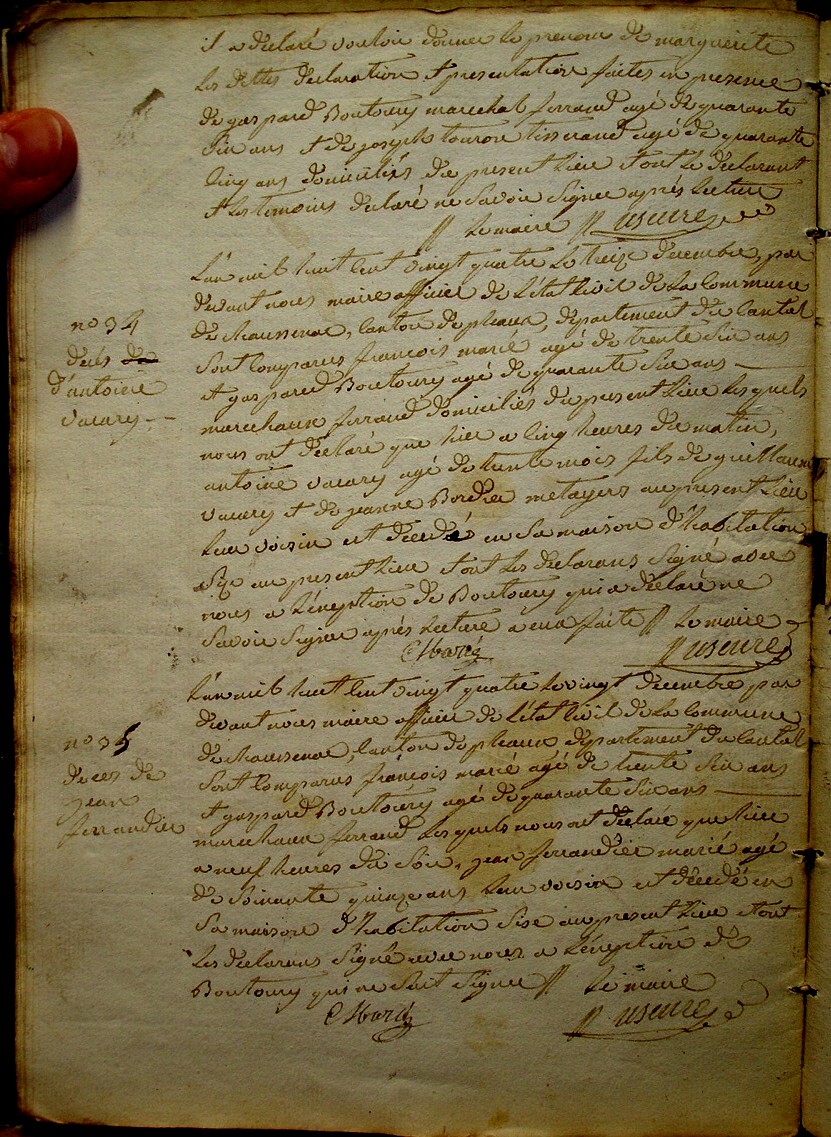 il a déclaré vouloir donner le prenom de marguerite
les dittes déclaration et présentation faites en présence
de gaspard Boutoury marechal ferrand agé de quarante
six ans et de joseph touron tisserand agé de quarante
cinq ans domiciliés du present lieu et ont le déclarant
et les temoins déclaré ne savoir signer après lecture
// Le maire
L'an mil huit cent vingt quatre le treize décembre, par
devant nous maire officier de l'état civil de la commune
de chaussenac, canton de pleaux, département du cantal
sont comparus françois marié agé de trente six ans
et gaspard Boutoury agé de quarante six ans
marechaux ferrand domiciliés du present lieu lesquels
nous ont déclaré que hier a cinq heures du matin,
antoine vacary agé de trente mois fils de guillaume
vacary et de jeanne Bordier metayers au present lieu
leur voisin est décédé en sa maison d'habitation
size au present lieu et ont les déclarans signé avec
nous a l'éxeption de Boutoury qui a déclaré ne
savoir signer après lecture a eux faite // Le maire
Marié
n° 34
decés de
d'antoine
vacary
L'an mil huit cent vingt quatre le vingt décembre par
devant nous maire officier de l'état civil de la commune
de chaussenac, canton de pleaux département du cantal
sont comparus françois marié agé de trente six ans
et gaspard Boutoury agé de quarante six ans
marechaux ferrand lesquels nous ont déclaré que hier
a neuf heures du soir, jean ferrandier marié agé
de soixante quinze ans leur voisin est décédé en
sa maison d'habitation sise au present lieu et ont
les declarans signé avec nous a l'éxeption de
Boutoury qui ne sait signer // Le maire
Marié
n° 35
deces de
jean
ferrandier